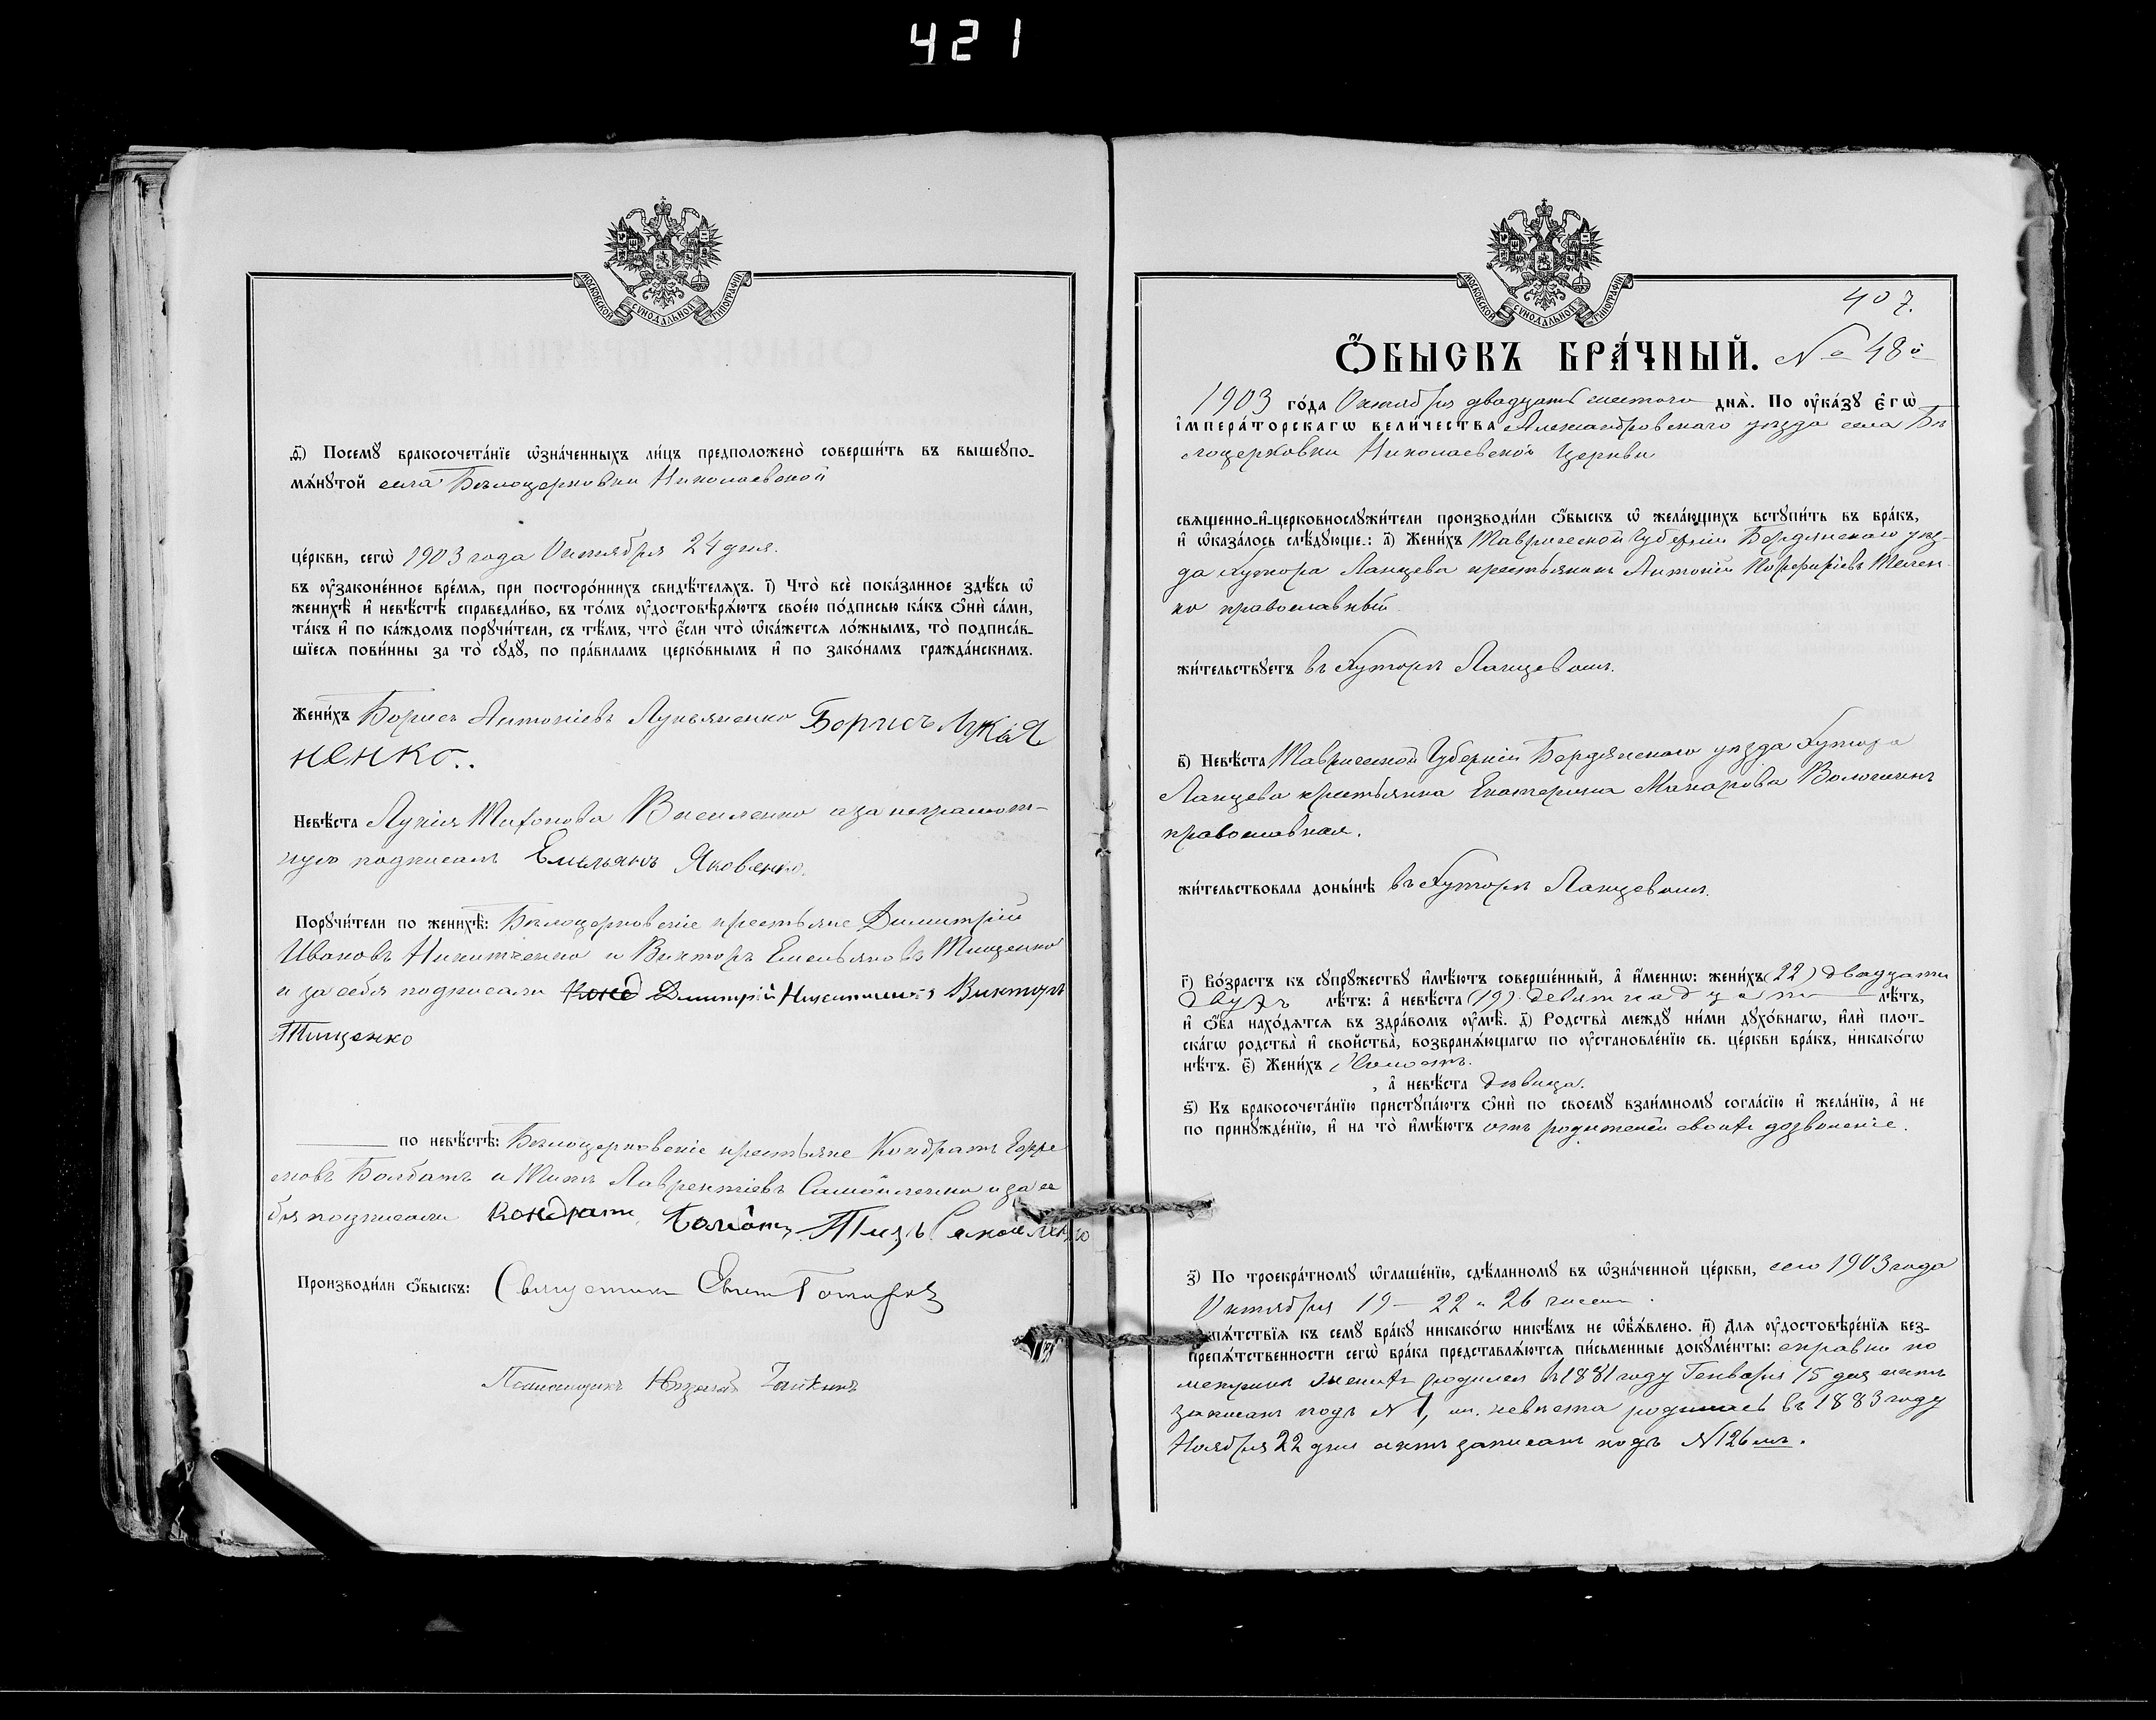 421
МОСКОВСКОЙ СѴНОДАЛЬНОЙ ТИПОГРАФІИ
ѳ҃) Посемꙋ̀ бракосочета́нїе ѡ҆зна́ченныхъ ли́цъ предположено̀ соверши́ть въ вышеꙋпо-
мѧ́нꙋтой села Бѣлоцерковки Николаевской
це́ркви, сегѡ̀ 1903 года Октября 24 дня.
въ ᲂу҆зако́ненное вре́мѧ, при посторо́ннихъ свидѣ́телѧхъ. і҃) Что̀ всѐ пока́занное здѣ́сь ѡ҆
женихѣ̀ и҆ невѣ́стѣ справедли́во, въ то́мъ ᲂу҆достовѣрѧ́ютъ свое́ю по́дписью ка́къ ѻ҆нѝ са́ми,
та́къ и҆ по ка́ждомъ порꙋчи́тели, съ тѣ́мъ, что̀ є҆́сли что̀ ѡ҆ка́жетсѧ ло́жнымъ, то̀ подписа́в-
шїесѧ пови́нны за то̀ сꙋдꙋ̀, по пра́виламъ церко́внымъ и҆ по зако́намъ гражда́нскимъ.
Жени́хъ Борисъ Антоніевъ Лукьяненко Борисъ Лукья
ненко..
Невѣ́ста Лукія Тихонова Василенко а за неграмот-
ную подписалъ Емельянъ Яковенко.
Порꙋчи́тели по женихѣ̀: Бѣлоцерковскіе крестьяне Димитрій
Ивановъ Никитченко и Викторъ Емельяновъ Тищенко
и за себя подписали Димитрій Никитченко Викторъ
Тищенко
по невѣ́стѣ: Бѣлоцерковскіе крестьяне Кондратъ Ефре
мовъ Болбатъ и Титъ Лаврентіевъ Самойленко и за се
бя подписали Кондратъ Болбатъ Титъ Самойленко
Производи́ли ѻ҆́быскъ: Священникъ
Псаломщикъ
МОСКОВСКОЙ СѴНОДАЛЬНОЙ ТИПОГРАФІИ
407.
Ѻ҆́БЫСКЪ БРА́ЧНЫЙ. № 48й
1903 го́да Октября двадцать шестого днѧ̀. По ᲂу҆ка́зꙋ є҆гѡ̀
і҆мпера́торскагѡ вели́чества Александровскаго уѣзда села Бѣ
лоцерковки Николаевской Церкви
свѧщенно-и҆-церковнослꙋжи́тели производи́ли ѻ҆́быскъ ѡ҆ жела́ющихъ встꙋпи́ть въ бра́къ,
и҆ ѡ҆каза́лось слѣ́дꙋющее: а҃) Жени́хъ Таврической Губерніи Бердянскаго уѣз-
да Хутора Ланцева крестьянинъ Антоній Порфиріевъ Телен-
ко православный
жи́тельствꙋетъ въ Хуторѣ Ланцевомъ.
в҃) Невѣ́ста Таврической Губерніи Бердянскаго уѣзда Хутора
Ланцева крестьянка Екатерина Макарова
православная.
жи́тельствовала доны́нѣ въ Хуторѣ Ланцевомъ.
г҃) Во́зрастъ къ сꙋпрꙋ́жествꙋ и҆мѣ́ютъ соверше́нный, а҆ и҆́менно: жени́хъ (22) двадцати
двухъ лѣ́тъ: а҆ невѣ́ста (19) девятнадцати лѣ́тъ,
и҆ ѻ҆́ба нахо́дѧтсѧ въ здра́вомъ ᲂу҆мѣ̀. д҃) Родства̀ междꙋ ни́ми дꙋхо́внагѡ, и҆лѝ плот-
ска́гѡ родства̀ и҆ свойства̀, возбранѧ́ющагѡ по ᲂу҆становле́нїю св. це́ркви бра́къ, никако́гѡ
нѣ́тъ. є҃) Жени́хъ Холостъ.
, а҆ невѣ́ста дѣвица.
ѕ҃) Къ бракосочета́нїю пристꙋпа́ютъ ѻ҆нѝ по своемꙋ̀ взаи́мномꙋ согла́сїю и҆ жела́нїю, а҆ не
по принꙋжде́нїю, и҆ на то̀ и҆мѣ́ютъ отъ родителей своихъ дозволеніе.
з҃) По троекра́тномꙋ ѡ҆глаше́нїю, сдѣ́ланномꙋ въ ѡ҆зна́ченной це́ркви, сего 1903 года
Октября 19 – 22 и 26 чиселъ.
пѧ́тствїѧ къ семꙋ̀ бра́кꙋ никако́гѡ никѣ́мъ не ѡ҆б̾ѧ́влено. и҃) Длѧ ᲂу҆достовѣре́нїѧ без-
препѧ́тственности сегѡ̀ бра́ка представлѧ́ютсѧ пи́сьменные докꙋме́нты: справки по
метрикѣ женихъ родился въ 1881 году Генваря 15 дня актъ
записанъ подъ № 1, м. невѣста родилась въ 1883 году
Ноября 22 дня актъ записанъ подъ № 126мъ.